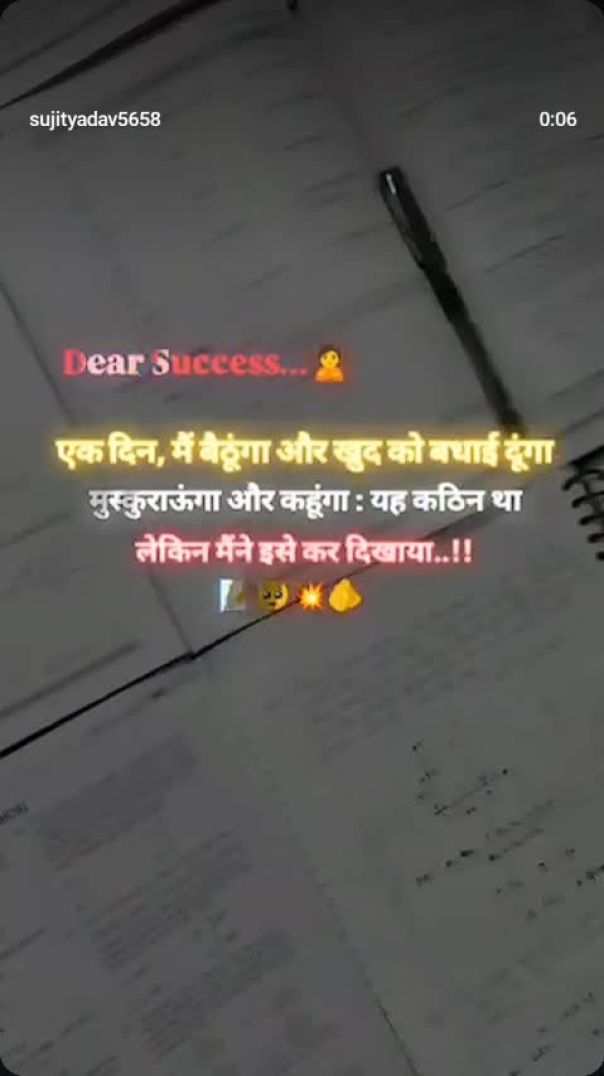 sujityadav5658
0:06
Dear Success... 🙍
एक दिन, मैं बैठूंगा और खुद को बधाई दूंगा
मुस्कुराऊंगा और कहूंगा : यह कठिन था
लेकिन मैंने इसे कर दिखाया..!!
🥺💥🫵